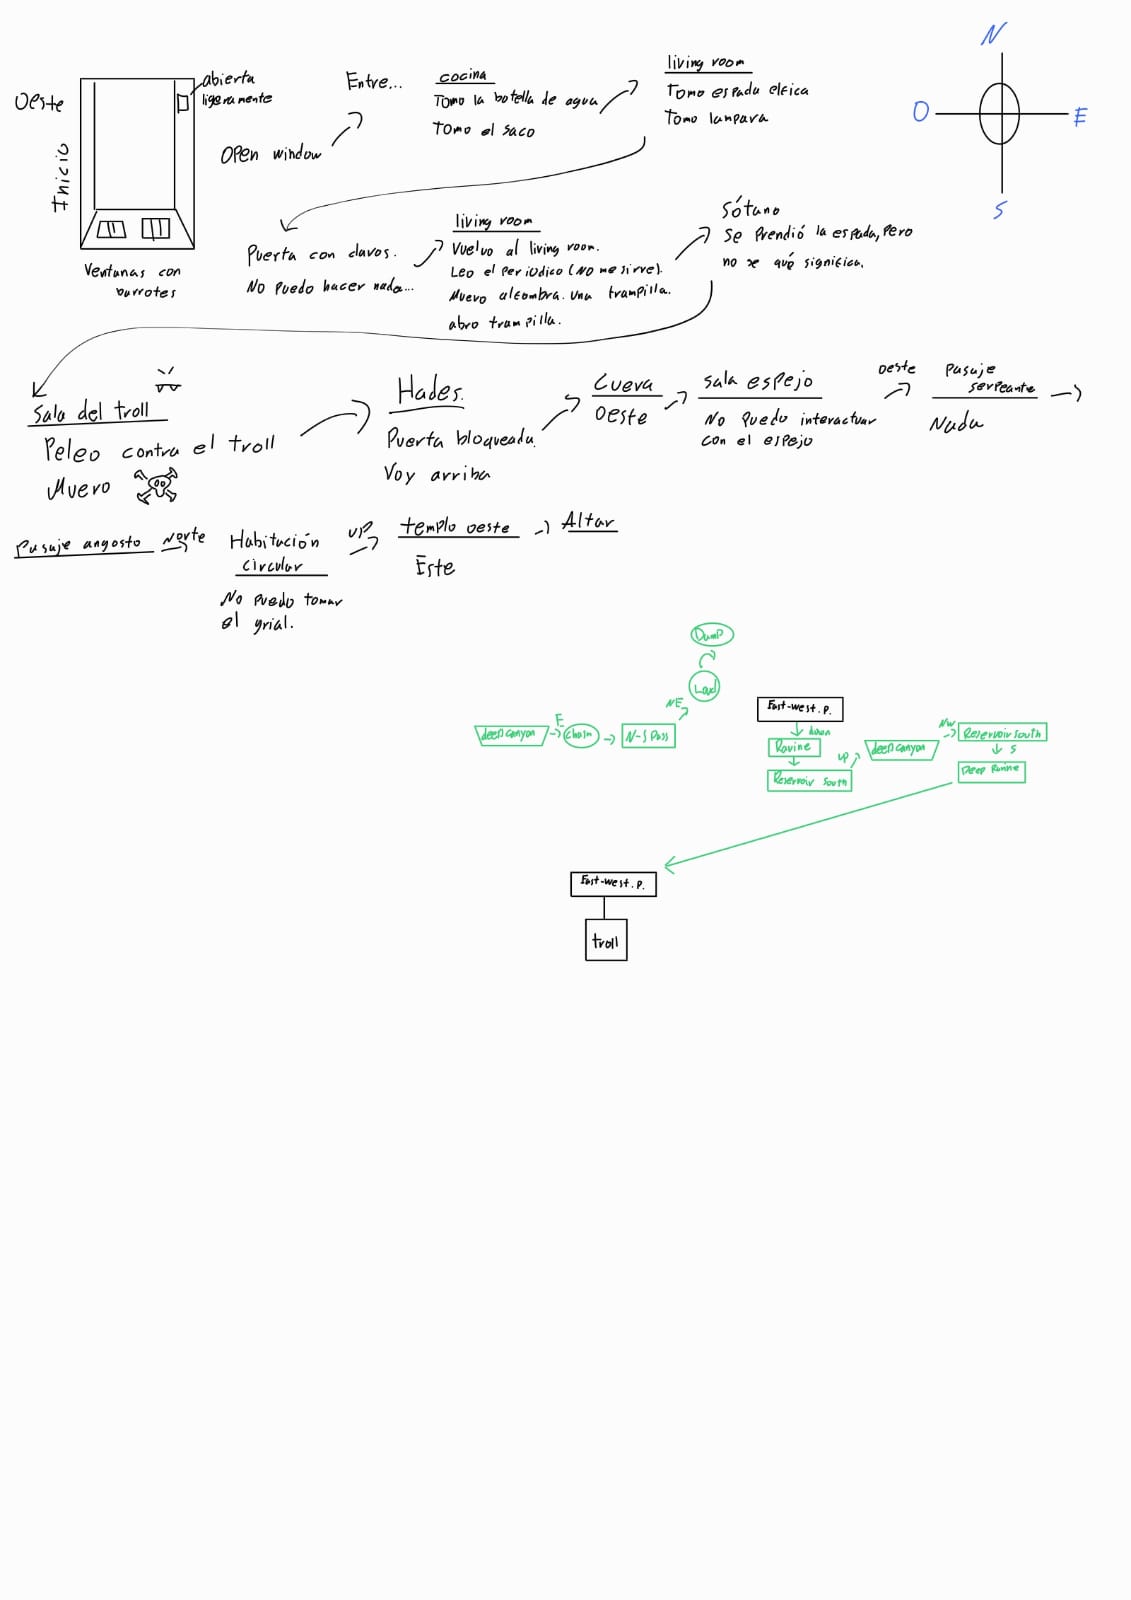 N
O
E
S
Oeste
Inicio
abierta
ligeramente
Ventanas con
barrotes
Open window
Entre...
cocina
Tomo la botella de agua
Tomo el saco
living room
Tomo espada elfica
Tomo lampara
Puerta con clavos.
No puedo hacer nada...
living room
Vuelvo al living room.
Leo el periodico (No me sirve).
Muevo alfombra. una trampilla.
abro trampilla.
Sótano
Se prendió la espada, pero
no se qué significa.
Sala del troll
Peleo contra el troll
Muero
Hades.
Puerta bloqueada.
Voy arriba
Cueva
oeste
sala espejo
No puedo interactuar
con el espejo
oeste
Pasaje
serpeante
Nada
Pasaje angosto
Norte
Habitación
circular
No puedo tomar
el grial.
UP
templo oeste
Este
Altar
Dump
Loud
NE
deep canyon
E
Chasm
N-S Pass
East-west. p.
down
Ravine
Reservoir South
UP
deep canyon
NW
Reservoir south
S
Deep Ravine
East-west. p.
troll